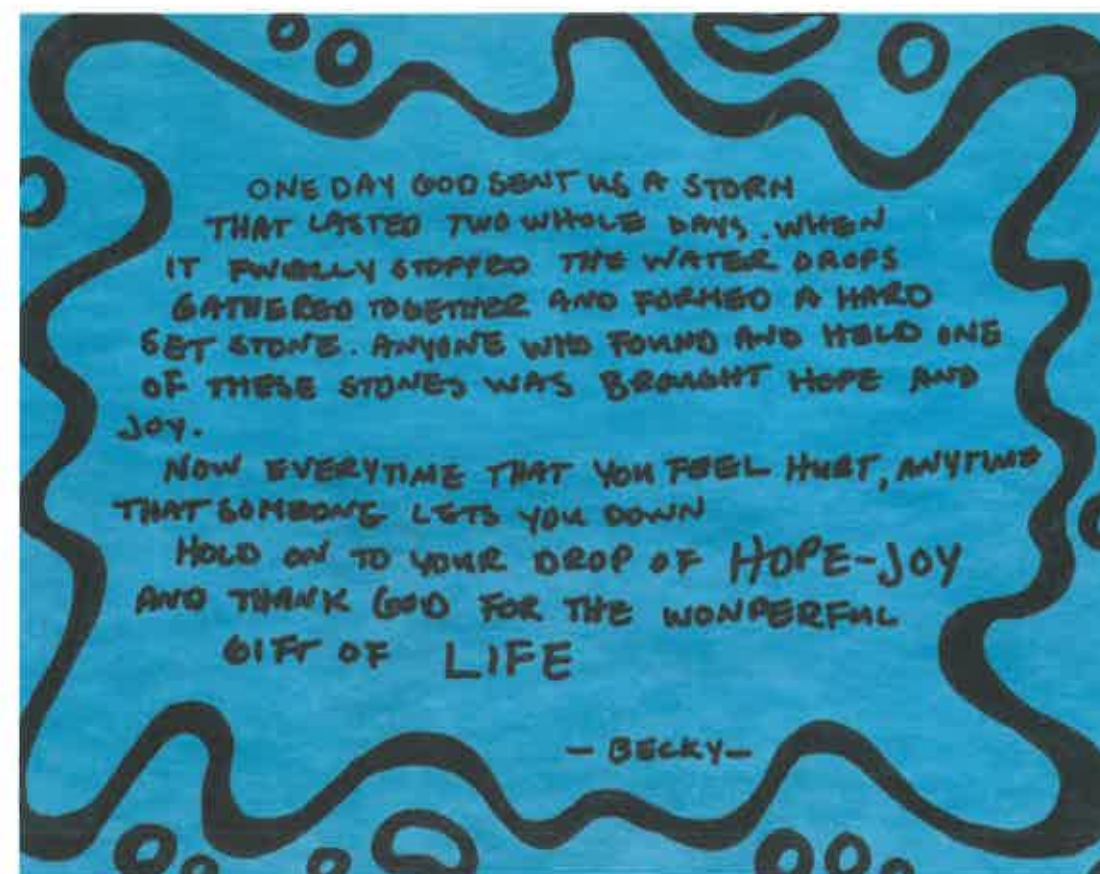 ONE DAY GOD SENT US A STORM
THAT LASTED TWO WHOLE DAYS. WHEN
IT FINALLY STOPPED THE WATER DROPS
GATHERED TOGETHER AND FORMED A HARD
SET STONE. ANYONE WHO FOUND AND HELD ONE
OF THESE STONES WAS BROUGHT HOPE AND
JOY.
NOW EVERYTIME THAT YOU FEEL HURT, ANYTIME
THAT SOMEONE LETS YOU DOWN
HOLD ON TO YOUR DROP OF HOPE-JOY
AND THANK GOD FOR THE WONDERFUL
GIFT OF LIFE
- BECKY -